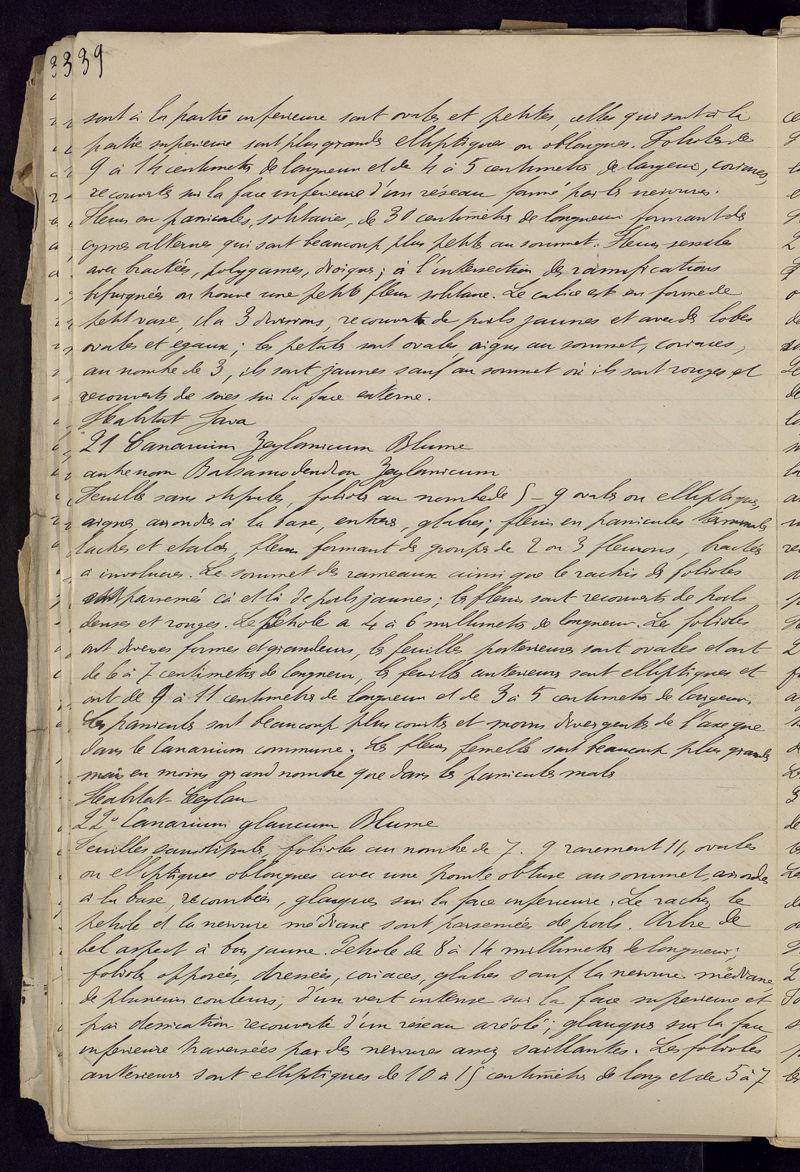 339
sont à la partie inferieure sont ovales et petites, celles qui sont à la
partie superieure sont plus grandes elliptiques ou oblongues. Folioles de
9 à 14 centimetres de longueur et de 4 à 5 centimetres de largeur, coriaces,
recouvertes sur la face inferieure d'un réseau formé par les nervures.
Fleurs en panicules, solitaires, de 30 centimètres de longueur formant des
cymes alternes qui sont beaucoup plus petites au sommet. Fleurs sessiles
avec bractées, polygames, dioiques; à l'intersection des ramifications
bifurquées on trouve une petite fleur solitaire. Le calice est en forme de
petit vase, il a 3 divisions, recouvert de poils jaunes et avec des lobes
ovales et egaux; les petales sont ovales, aigus au sommet, coriaces,
au nombre de 3, ils sont jaunes sauf au sommet où ils sont rouges et
recouverts de soies sur la face externe.
Habitat Java
21 Canarium Zeylanicum Blume
autre nom Balsamodendron Zeylanicum
Feuilles sans stipules, folioles au nombre de 5-9 ovales ou elliptiques,
aigues, arrondies à la base, entieres, glabres; fleurs en panicules terminales
laches et etalées, fleurs formant des groupes de 2 ou 3 fleurons, bractées
a involucres. Le sommet des rameaux ainsi que le rachis des folioles
parsemés cà et là de poils jaunes; les fleurs sont recouvertes de poils
denses et rouges. Le petiole a 4 à 6 millimetres de longueur. Les folioles
ont diverses formes et grandeurs, les feuilles posterieures sont ovales et ont
de 6 à 7 centimetres de longueur, les feuilles anterieures sont elliptiques et
ont de 9 à 11 centimètres de longueur et de 3 à 5 centimetres de largeur.
Les panicules sont beaucoup plus courtes et moins divergentes de l'axe que
dans le Canarium commune. Les fleurs femelles sont beaucoup plus grandes
mais en moins grand nombre que dans les panicules males
Habitat Ceylan
22° Canarium glaucum Blume
Feuilles sans stipules folioles au nombre de 7-9 rarement 11, ovales
ou elliptiques oblongues avec une pointe obtuse au sommet, arrondies
à la base, recourbées, glauques sur la face inferieure. Le rachis, le
petiole et la nervure médiane sont parsemés de poils. Arbre de
bel aspect à bois jaune. Petiole de 8 à 14 millimetres de longueur;
folioles opposées, dressées, coriaces, glabres sauf la nervure mediane,
de plusieurs couleurs, d'un vert intense sur la face superieure et
par dessication recouverte d'un réseau areolé; glauques sur la face
inferieure traversées par des nervures assez saillantes. Les folioles
anterieures sont elliptiques de 10 à 15 centimètres de long et de 5 à 7